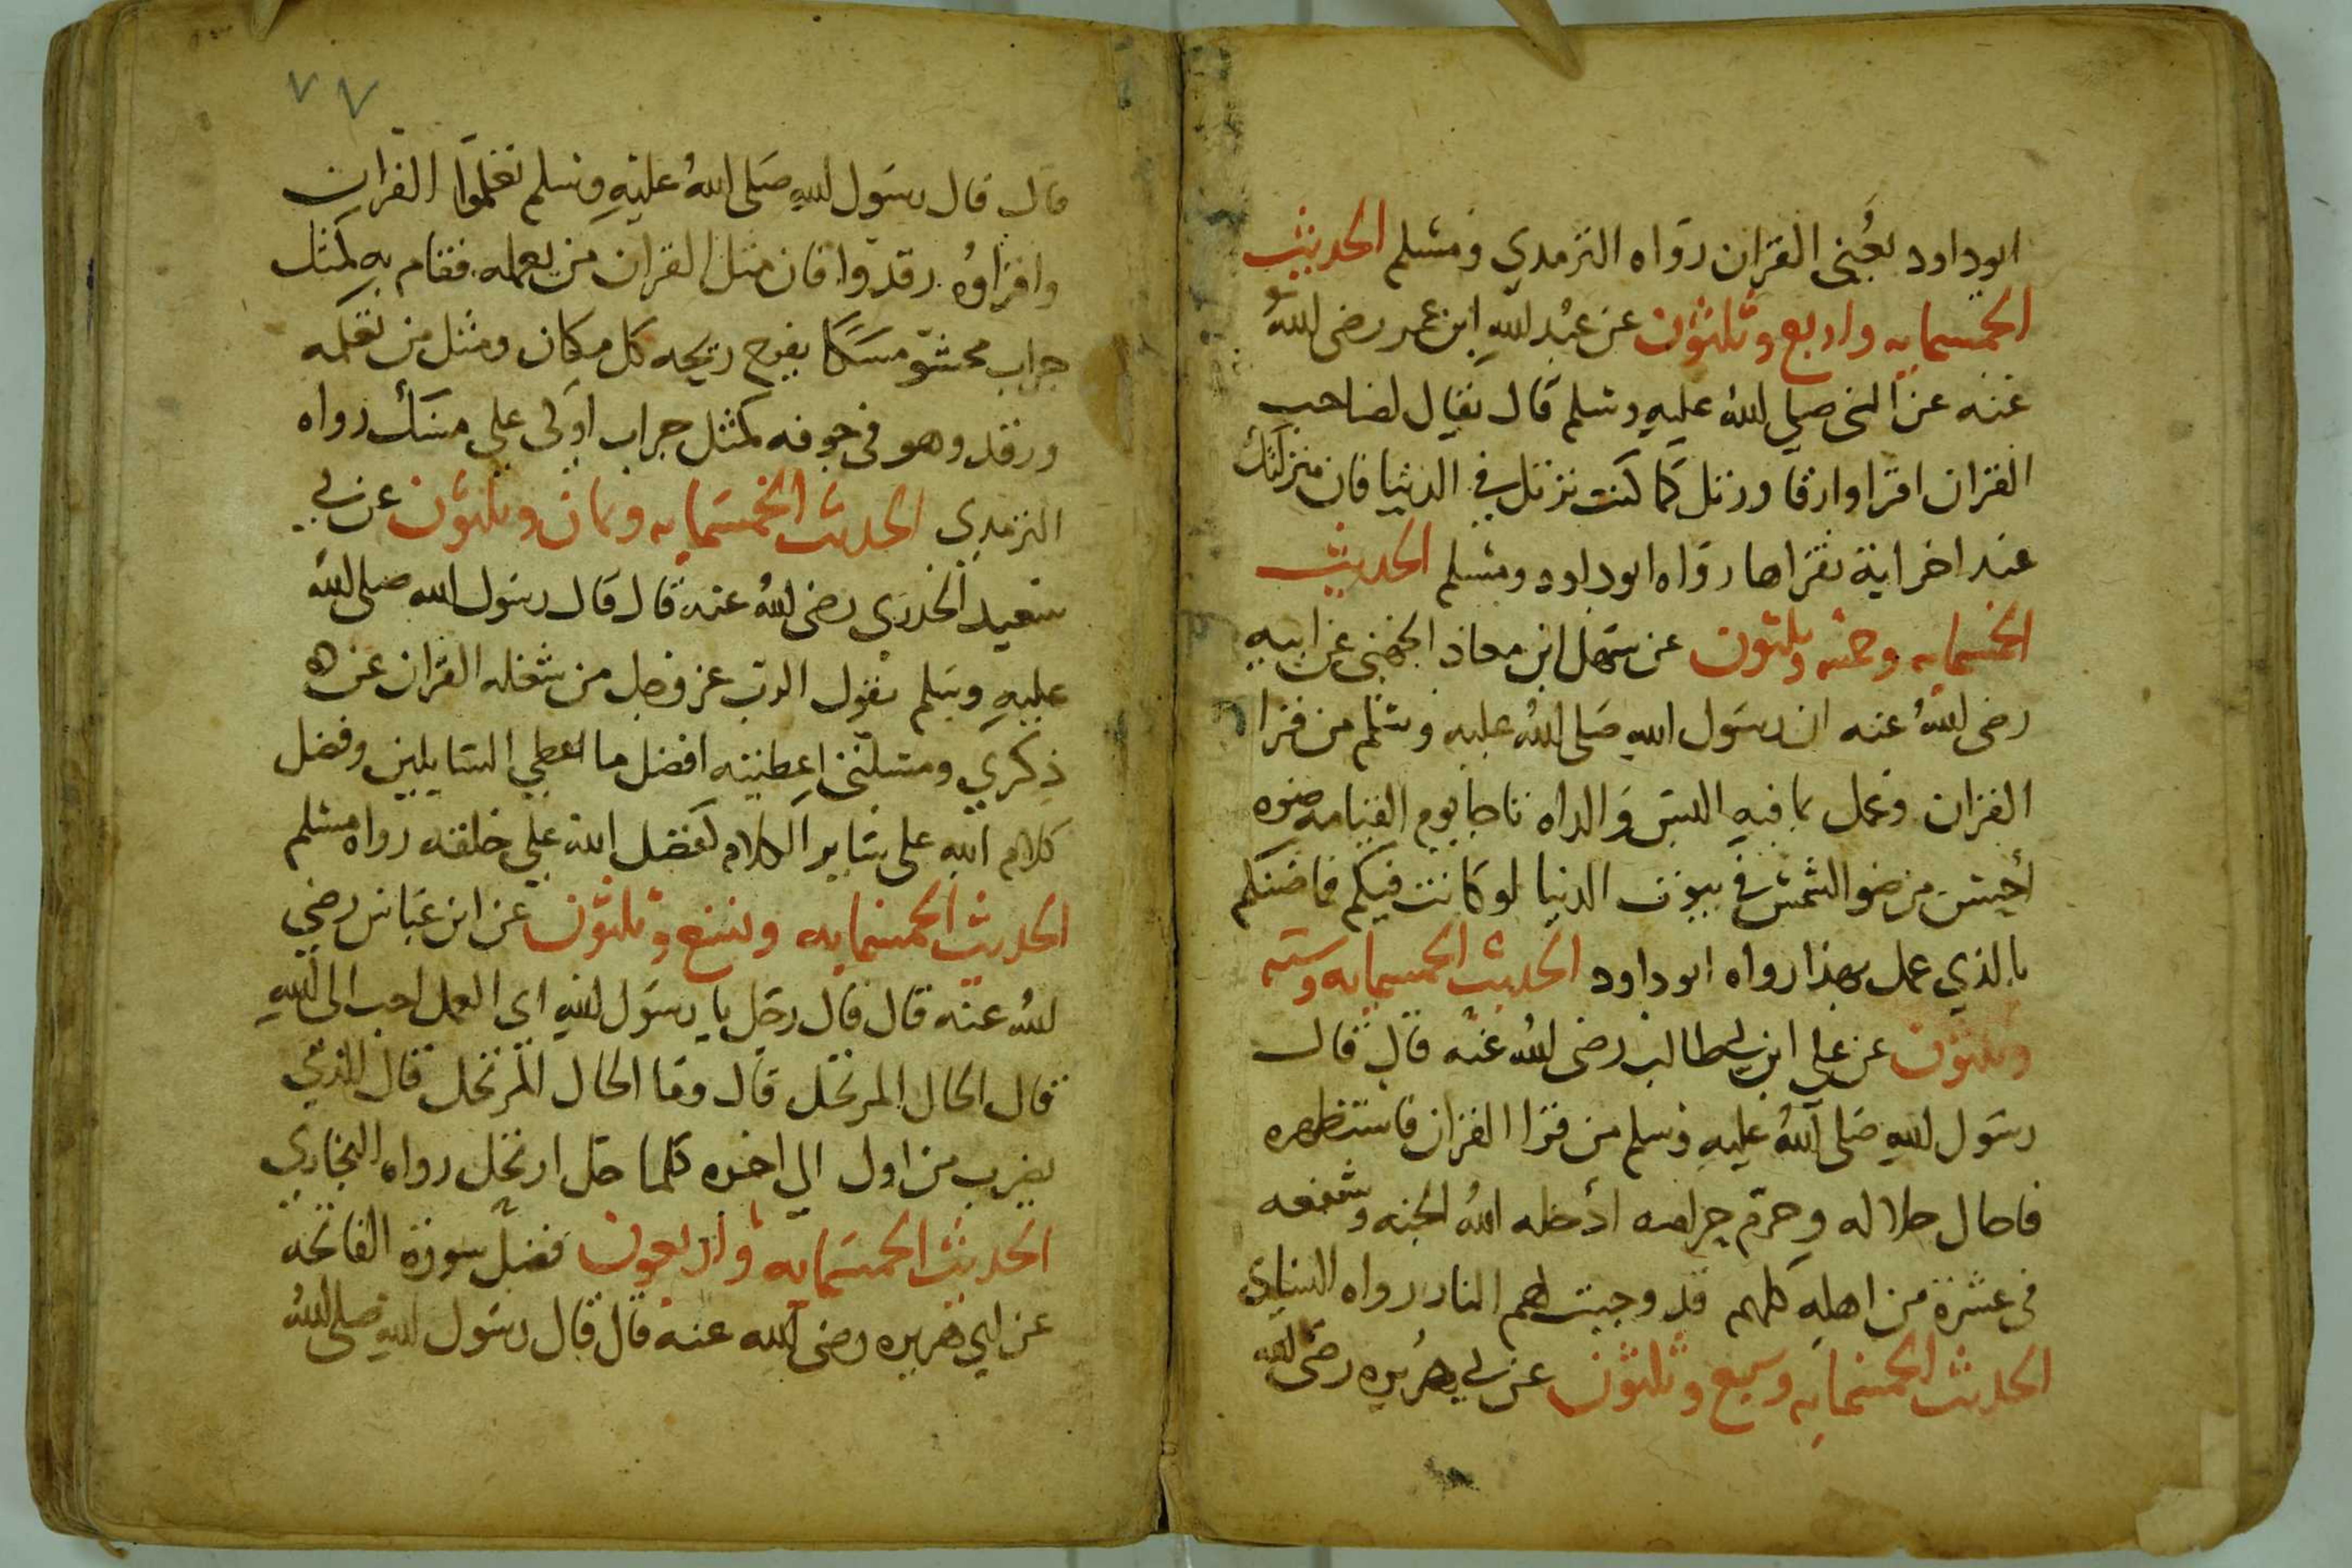 ابوداود يعني القران رواه الترمدي ومسلم الحديث
الخمسمايه واربع وثلثون عن عبد الله ابن عمر رضى الله
عنه عن النبى صلى الله عليه وسلم قال يقال لصاحب
القران اقرا وارقا ورتل كما كنت ترتل في الدنيا فان منزلتك
عند اخر اية تقراها رواه ابوداود ومسلم الحديث
الخمسمايه وخمسه وثلثون عن سهل ابن معاذ الجهنى عن ابيه
رضى الله عنه ان رسول الله صلى الله عليه وسلم من قرا
القران وعمل بما فيه البس والداه تاجا يوم القيامه ضوه
أحسن من ضو الشمس في بيوت الدنيا لو كانت فيكم فما ضنكم
بالذي عمل بهذا رواه ابوداود الحديث الخمسمايه وسته
وثلثون عن علي ابن ابي طالب رضى الله عنه قال قال
رسول الله صلى الله عليه وسلم من قرا القران فاستظهره
فاحال حلاله وحرم حرامه أدخله الله الجنه وشفعه
فى عشرة من اهله كلهم قد وجبت لهم النار رواه
الحديث الخمسمايه وسبع وثلثون عن ابي هريره رضى الله
٧٧
قال قال رسول الله صلى الله عليه وسلم تعلموا القران
واقراوه وقدوا فان مثل القران من يعمله فقام به كمثل
جراب محشو مسكا يفوح ريحه كل مكان ومثل من تعلمه
ورقد وهو فى جوفه كمثل جراب اوكى على مسك رواه
الترمدي الحديث الخمسمايه وثمان وثلثون عن ابي
سعيد الخدرى رضى الله عنه قال قال رسول الله صلى الله
عليه وسلم يقول الرب عز وجل من شغله القران عن
ذكري ومسلتى اعطيته افضل ما اعطي السايلين وفضل
كلام الله على ساير الكلام كفضل الله على خلقه رواه مسلم
الحديث الخمسمايه وتسع وثلثون عن ابن عباس رضي
الله عنه قال قال رجل يا رسول الله اى العمل احب الى الله
قال الحال المرتحل قال وما الحال المرتحل قال الذي
يضرب من اول الي اخره كلما حل ارتحل رواه البخاري
الحديث الخمسمايه واربعون فضل سورة الفاتحه
عن ابي هريره رضى الله عنه قال قال رسول الله صلى الله